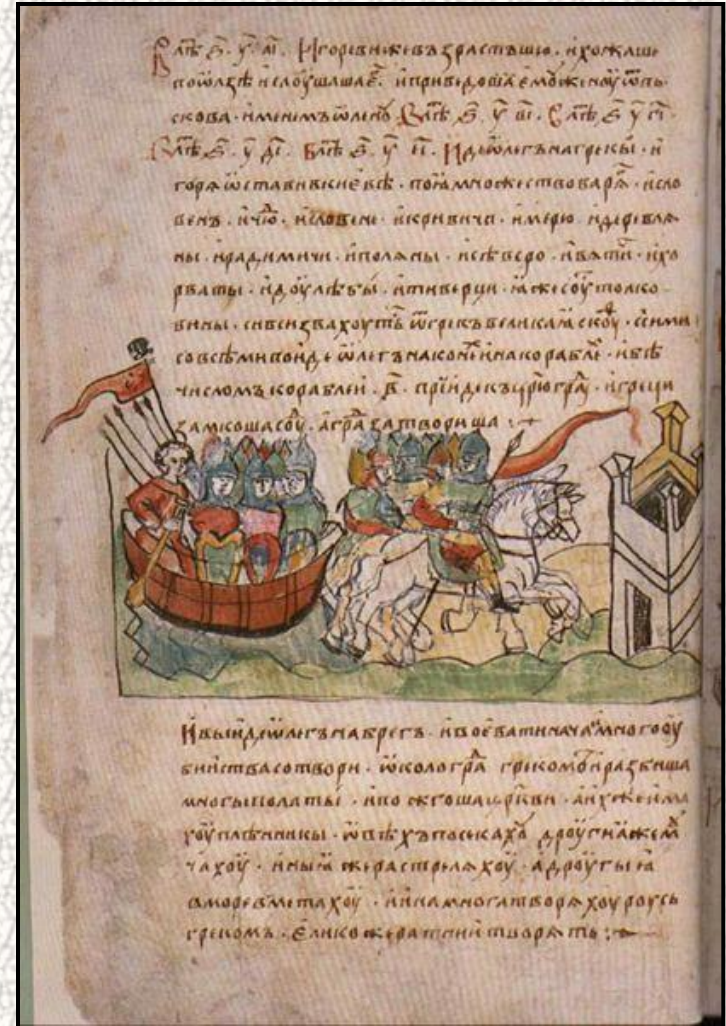 В лѣⷮ ҂s҃. у҃. а҃і. Игореви же възрастъшю. и хожаше
по ѡлзѣ и слоушаше еⷢ҇. и приведоша емоу женоу ѿ пь
скова. именемъ ѡленоу В лѣⷮ. ҂s҃. у҃ в҃і. В лѣⷮ, ҂s҃ у҃ г҃і.
В лѣⷮ ҂s҃. у҃ д҃і. В лѣⷮ ҂s҃. у҃ е҃і. Иде ѡлегъ на грекы. и
горѧ ѡставивъ киевѣ. поꙗ множество варѧⷢ. и сло
венъ. и чюⷣ. и словене. и кривичи. и мерю. и деревлѧ
ны. и радимичи. и полѧны. и сѣверо. и вѧтиⷱ. и хо
рваты. и доулѣбы. и тиверци. ꙗже соуⷮ толко
вины. си вси звахоуть ѿ грекъ великаꙗ скоуⷴ. с сими
со всѣми поиде ѡлегъ на конеⷯ и на кораблеⷯ. и бѣ
числомъ кораблеи. ҂в҃. прїиде къ ц҃рюграⷣ. и греци
замкоша соуⷣ. а граⷣ затвориша
И выиде ѡлегъ на брегъ. и воевати нача. и много оу
биїства сотвори. ѡколо граⷣ грекомъ. и разбиша
многы полаты. и пожгоша церкви. а ихже има
хоу плѣнникы. ѡвѣхъ посекахоу дроугиꙗ же моу
чахоу. иныꙗ же растрелѧхоу. а дроугыꙗ
в море вметахоу. и ина многа творѧхоу роусь
грекомъ. елико же ратнии творѧть